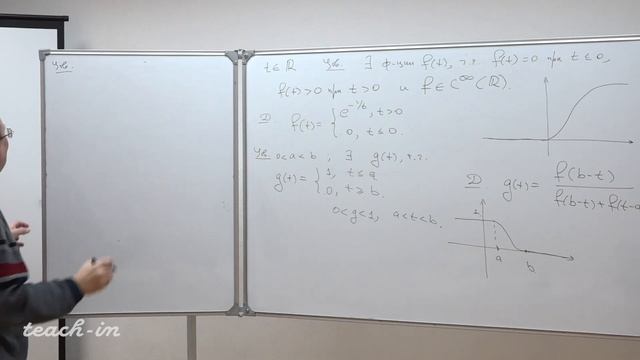 Утв.
t ∈ ℝ Утв. ∃ ф-ция f(t), т.ч. f(t)=0 при t ≤ 0,
f(t)>0 при t>0 и f ∈ C^∞(ℝ).
D. f(t) = { e^{-1/t}, t>0
0, t ≤ 0.
Утв. 0<a<b, ∃ g(t), т.ч.
g(t) = { 1, t ≤ a
0, t ≥ b.
0<g<1, a<t<b.
D. g(t) = f(b-t) / f(b-t)+f(t-a
1
a
b
teach-in